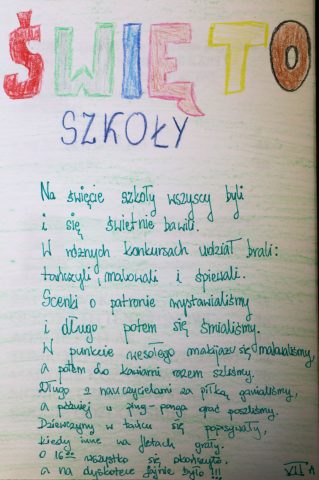 ŚWIĘTO
SZKOŁY
Na święcie szkoły wszyscy byli
i się świetnie bawili.
W różnych konkursach udział brali:
tańczyli, malowali i śpiewali.
Scenki o patronie wystawialiśmy
i długo potem się śmialiśmy.
W punkcie wesołego makijażu się malowaliśmy,
a potem do kawiarni razem szliśmy.
Długo z nauczycielami za piłką ganialiśmy,
a później w ping-ponga grać poszliśmy.
Dziewczyny w tańcu się popisywały,
kiedy inne na fletach grały.
O 16⁰⁰ wszystko się skończyło,
a na dyskotece fajnie było !!!